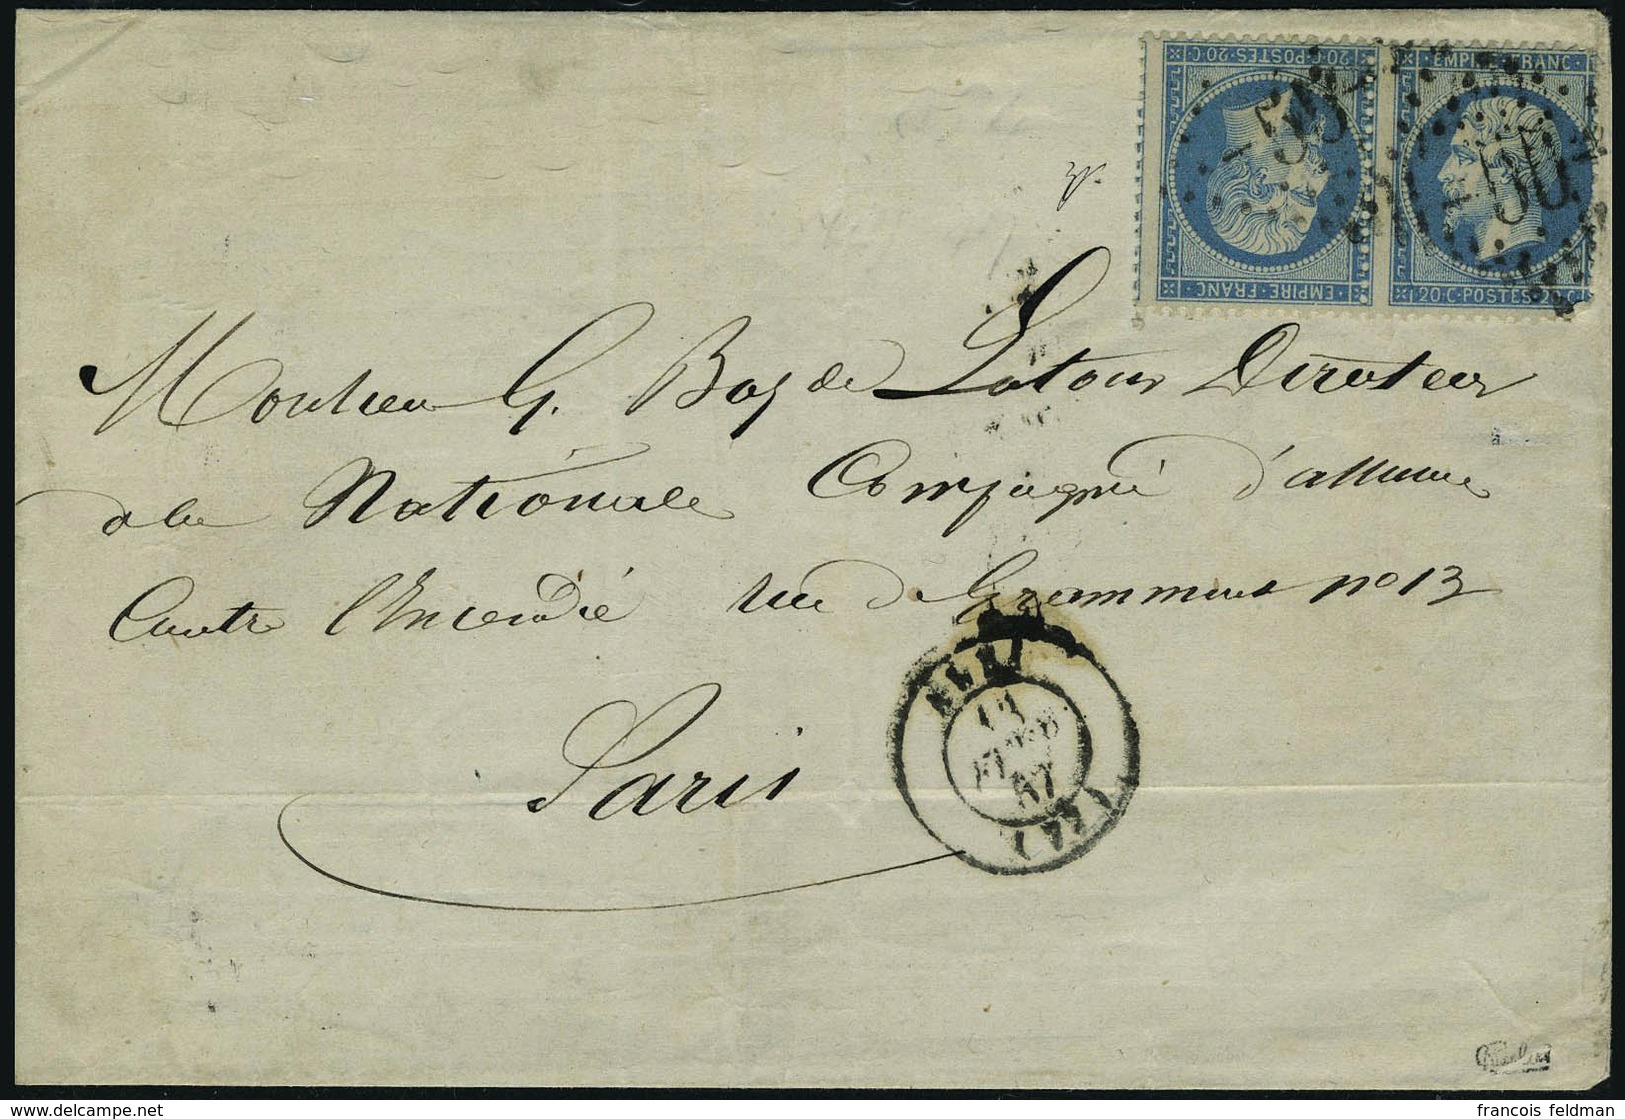 20·C·POSTES·20·C
EMPIRE·FRANC
EMPIRE·FRANC
20·C·POSTES·20·C
Monsieur G. Boy de Latour Directeur
de la Nationale Compagnie d'assurance
Contre l'Incendie rue de Grammont no 13
Paris
13
67
(84)
www.delcampe.net
francois feldman